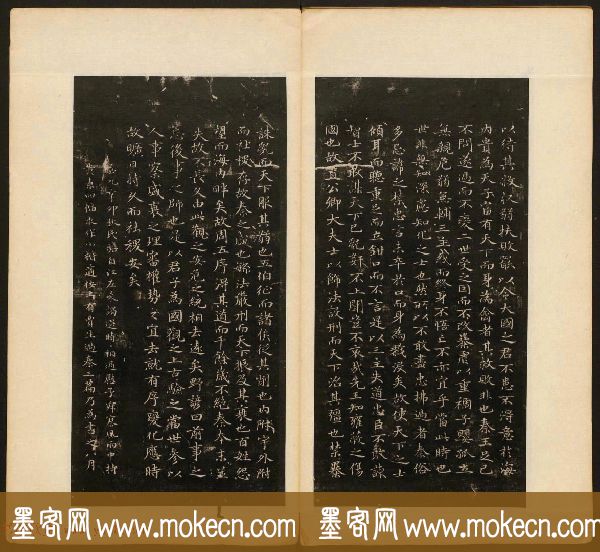 以待其敝收弱扶罷以令大國之君不患不得意於海
内貴為天子富有天下而身為禽者其救敗非也秦王足己
不問遂過而不變二世受之因而不改暴虐以重禍子嬰孤立
無親危弱無輔三主惑而終身不悟亡不亦宜乎當此時也
世非無深慮知化之士也然所以不敢盡忠拂過者秦俗
多忌諱之禁忠言未卒於口而身為戮沒矣故使天下之士
傾耳而聽重足而立鉗口而不言是以三主失道忠臣不敢諫
智士不敢謀天下已亂姦不上聞豈不哀哉先王知雍蔽之傷
國也故置公卿大夫士以飾法設刑而天下治其彊也禁暴
誅亂而天下服其弱也五伯征而諸侯從其削也内守外附
而社稷存故秦之盛也繁法嚴刑而天下振及其衰也百姓怨
望而海内畔矣故周五序得其道而千餘歲不絕秦本末並
失故不長久由此觀之安危之統相去遠矣野諺曰前事之
忘後事之師也是以君子為國觀之上古驗之當世參以
人事察盛衰之理審權勢之宜去就有序變化應時
故曠日持久而社稷安矣
自江左來 時相過慰予 風雨中持
四幅求作小楷適 有賈生過秦 篇乃為書之 月
墨客网 www.mokecn.com
墨客网 www.mokecn.com